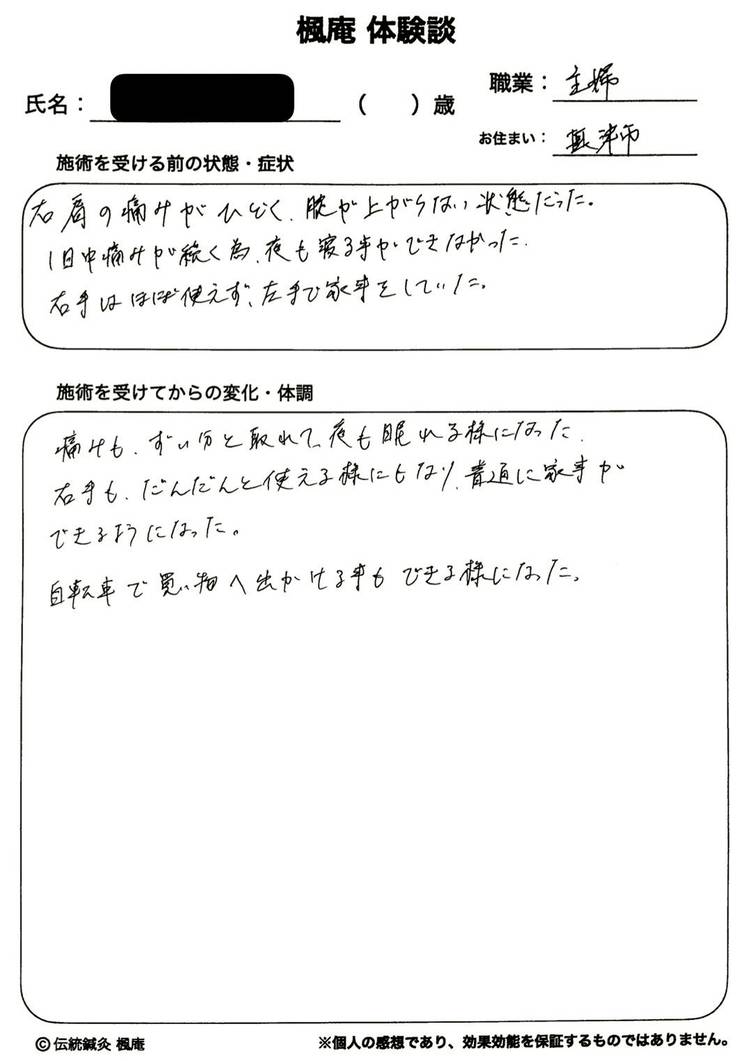 楓庵 体験談
氏名：
（　　）歳
職業：主婦
お住まい：草津市
施術を受ける前の状態・症状
右肩の痛みがひどく、腕が上がらない状態だった。
1日中痛みが続く為、夜も寝る事ができなかった。
右手はほぼ使えず、左手で家事をしていた。
施術を受けてからの変化・体調
痛みも、ずい分と取れて、夜も眠れる様になった。
右手も、だんだんと使える様にもなり、普通に家事が
できるようになった。
自転車で買い物へ出かける事もできる様になった。
©伝統鍼灸 楓庵
※個人の感想であり、効果効能を保証するものではありません。